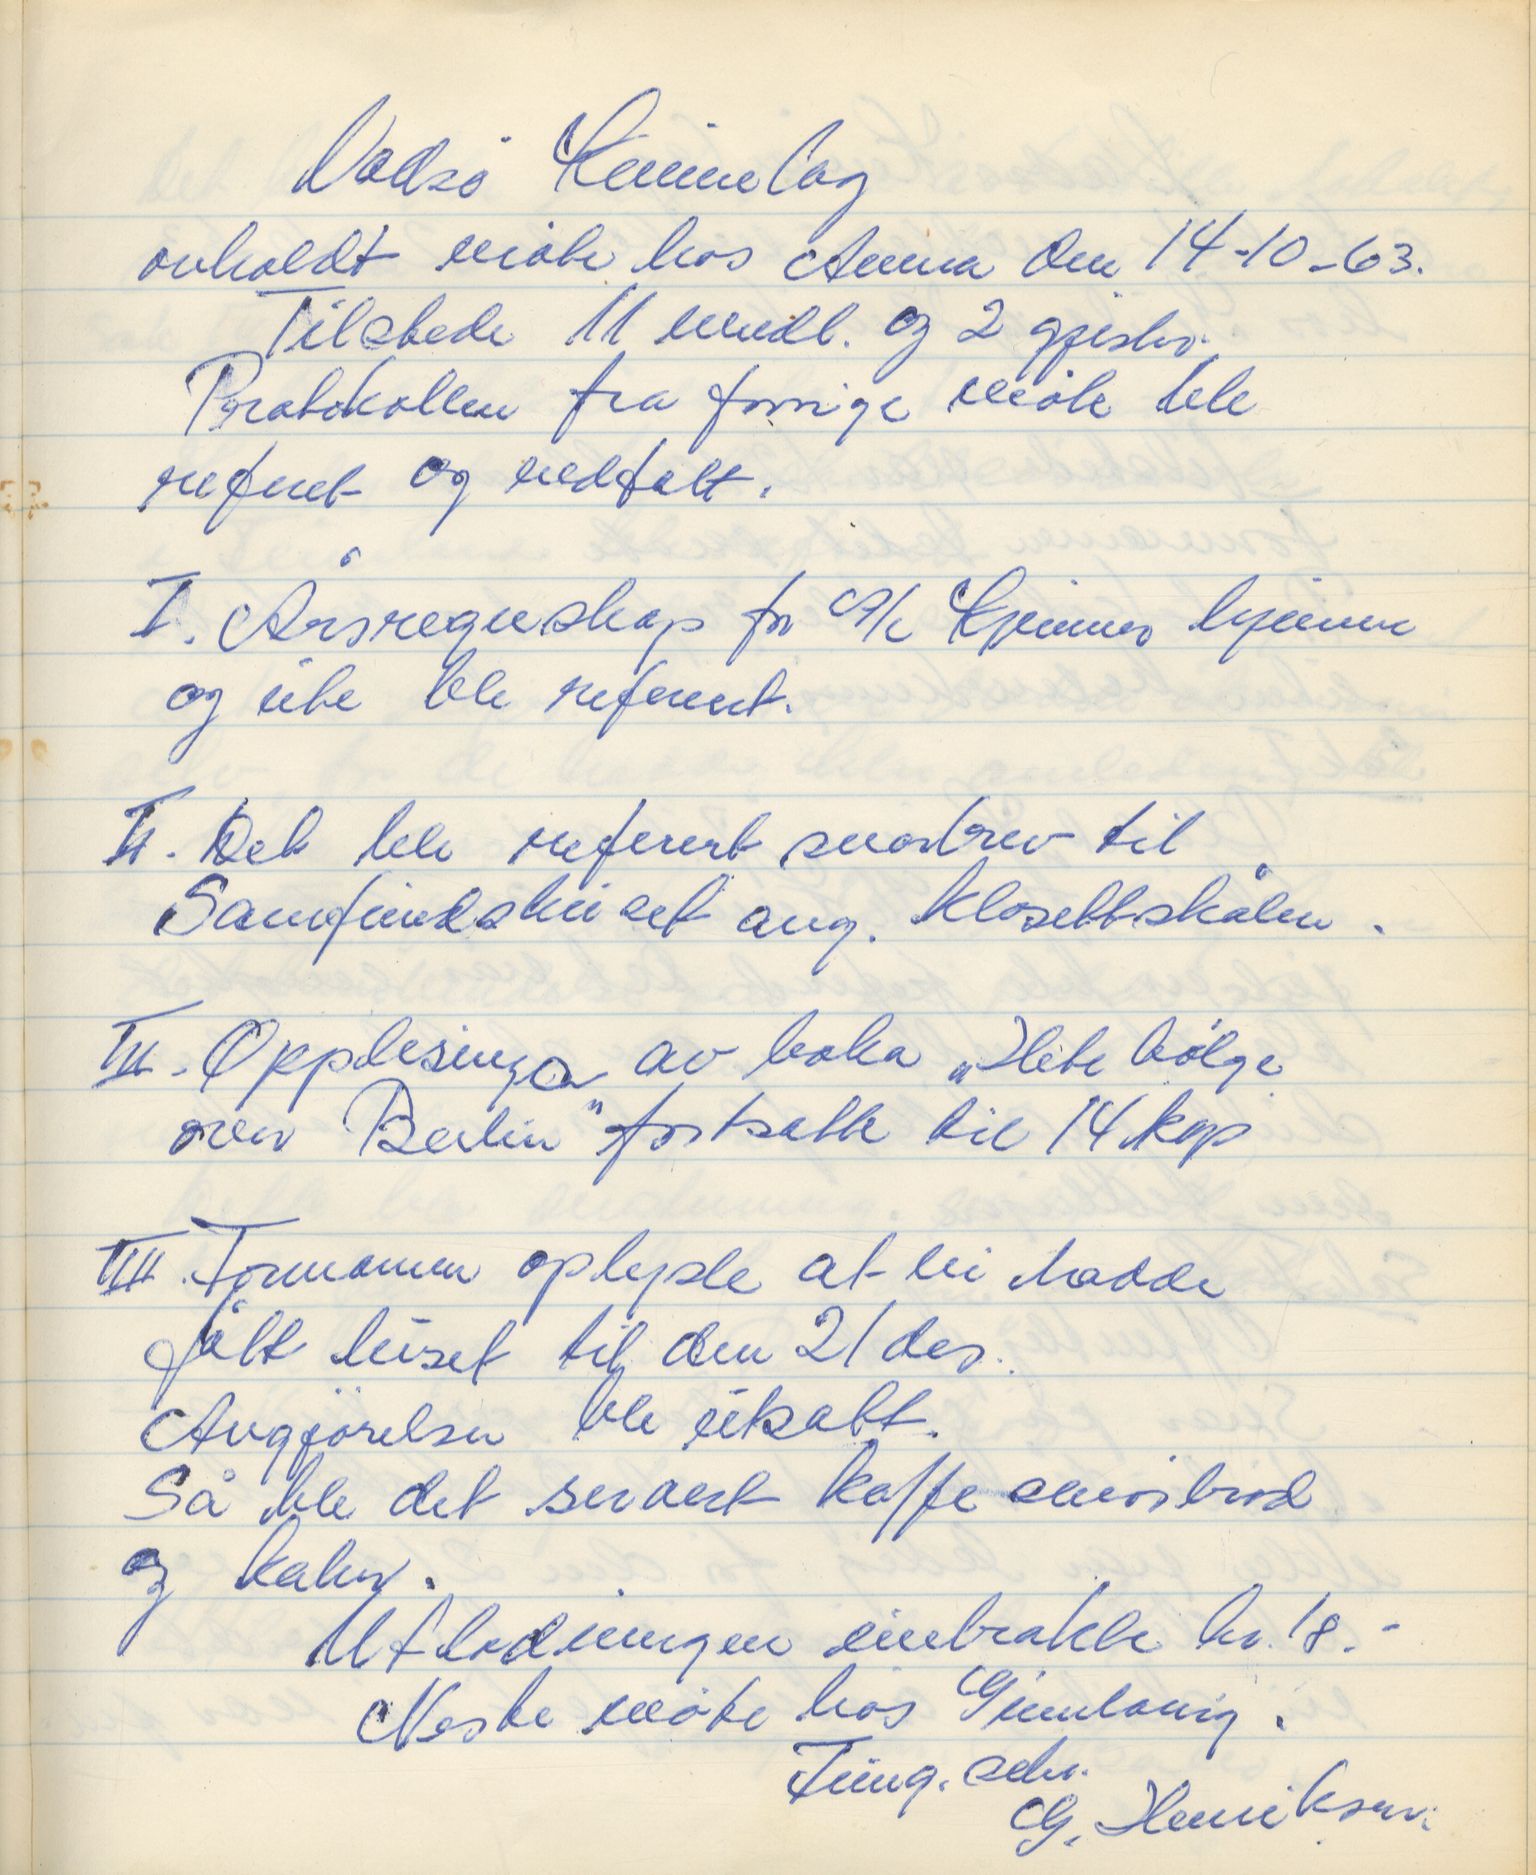 Vadsö Kvinnelag
avholdt möte hos Anna den 14-10-63.
Tilstede 11 medl. og 2 gjester.
Protokollen fra forrige möte ble
referet og vedtatt.
I. Årsregnskap for A/L Kvinner hjemme
og ute ble referert.
II. Det ble referert svarbrev til
Samfundshuset ang. klosettskålen.
III. Opplesinga av boka „Hete bölge
over Berlin" fortsatte til 14 kap
IIII. Formannen oplyste at vi hadde
fått huset til den 21 des.
Avgjörelsen ble utsatt.
Så ble det servert kaffe smörbröd
og kaker.
Utlodningen innbrakte kr. 18.-
Neste möte hos Gunlaug.
Fung. sekr.
G. Henriksen.